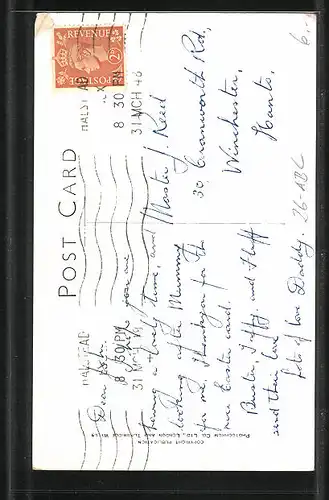 POST CARD
HALSTEAD
8 30 PM
31 MCH 48
POSTAGE REVENUE
2D
HALSTEAD
8 30 PM
31 MCH
Dear John,
I hope you are
having a lovely time, and
looking after Mummy
for me. Thankyou for the
nice Easter card.
Buster, Jeffy and Fluff
send their love
Lots of love Daddy.
Master J. Reed
30, Cranworth Rd,
Winchester,
Hants.
26-ABC
COPYRIGHT PUBLICATION
PHOTOCHROM CO. LTD., LONDON AND TUNBRIDGE WELLS